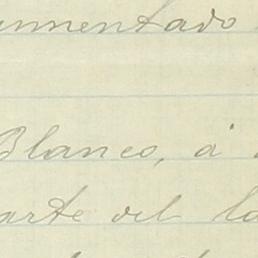 aumentado
Blanco, á
arte del la